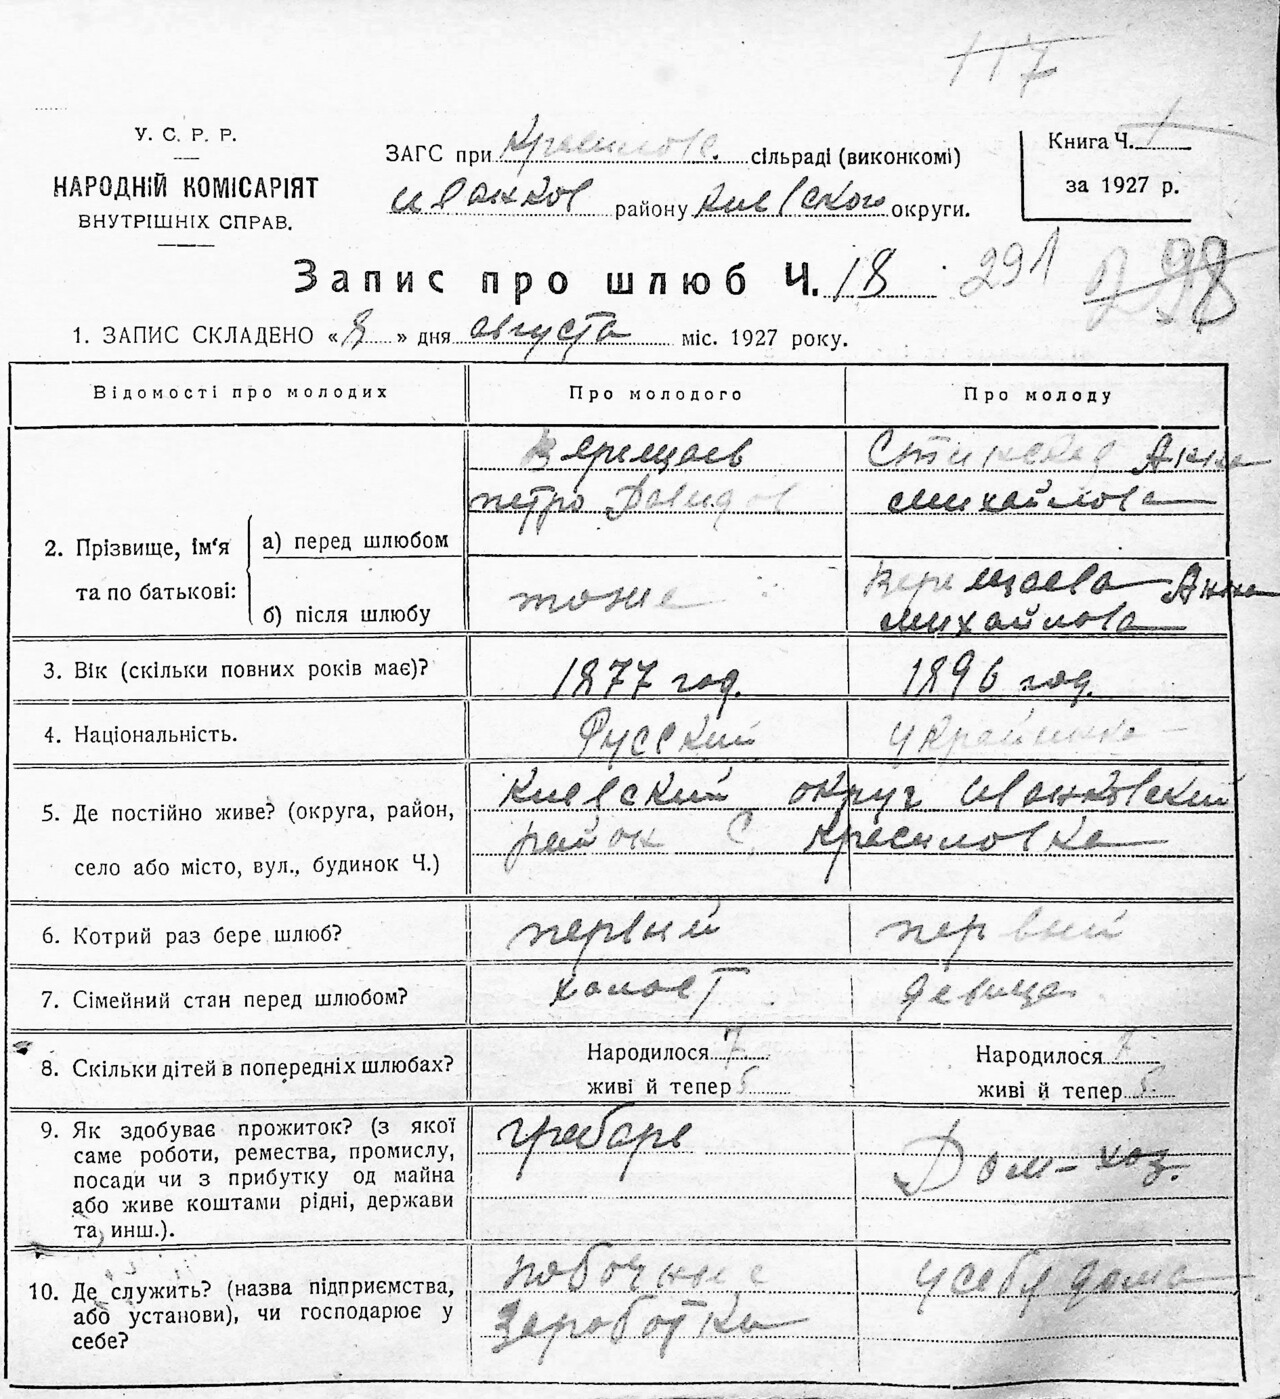 117
У. С. Р. Р.
НАРОДНІЙ КОМІСАРІЯТ
ВНУТРІШНІХ СПРАВ.
ЗАГС при Красиловс. сільраді (виконкомі)
Иванков району Киевского округи.
Книга Ч. 1
за 1927 р.
Запис про шлюб Ч. 18 291 98
1. ЗАПИС СКЛАДЕНО «8» дня августа міс. 1927 року.
Відомості про молодих Про молодого Про молоду
2. Прізвище, ім'я та по батькові:
а) перед шлюбом
Верещаев
петро Давидов
Анна
михайлова
б) після шлюбу
тоже
Верещаева Анна
михайлова
3. Вік (скільки повних років має)? 1877 год. 1896 год.
4. Національність. Русский украинка
5. Де постійно живе? (округа, район,
село або місто, вул., будинок Ч.)
Киевский округ Иванковский
район С. Красиловка
6. Котрий раз бере шлюб? первый первый
7. Сімейний стан перед шлюбом? холост девица
8. Скільки дітей в попередніх шлюбах?
Народилося 7 Народилося 7
живі й тепер 5 живі й тепер 5
9. Як здобуває прожиток? (з якої
саме роботи, ремества, промислу,
посади чи з прибутку од майна
або живе коштами рідні, держави
та инш.).
грабарь
Дом-хоз.
10. Де служить? (назва підприємства,
або установи), чи господарює у
себе?
побочные
заработки
у себя дома